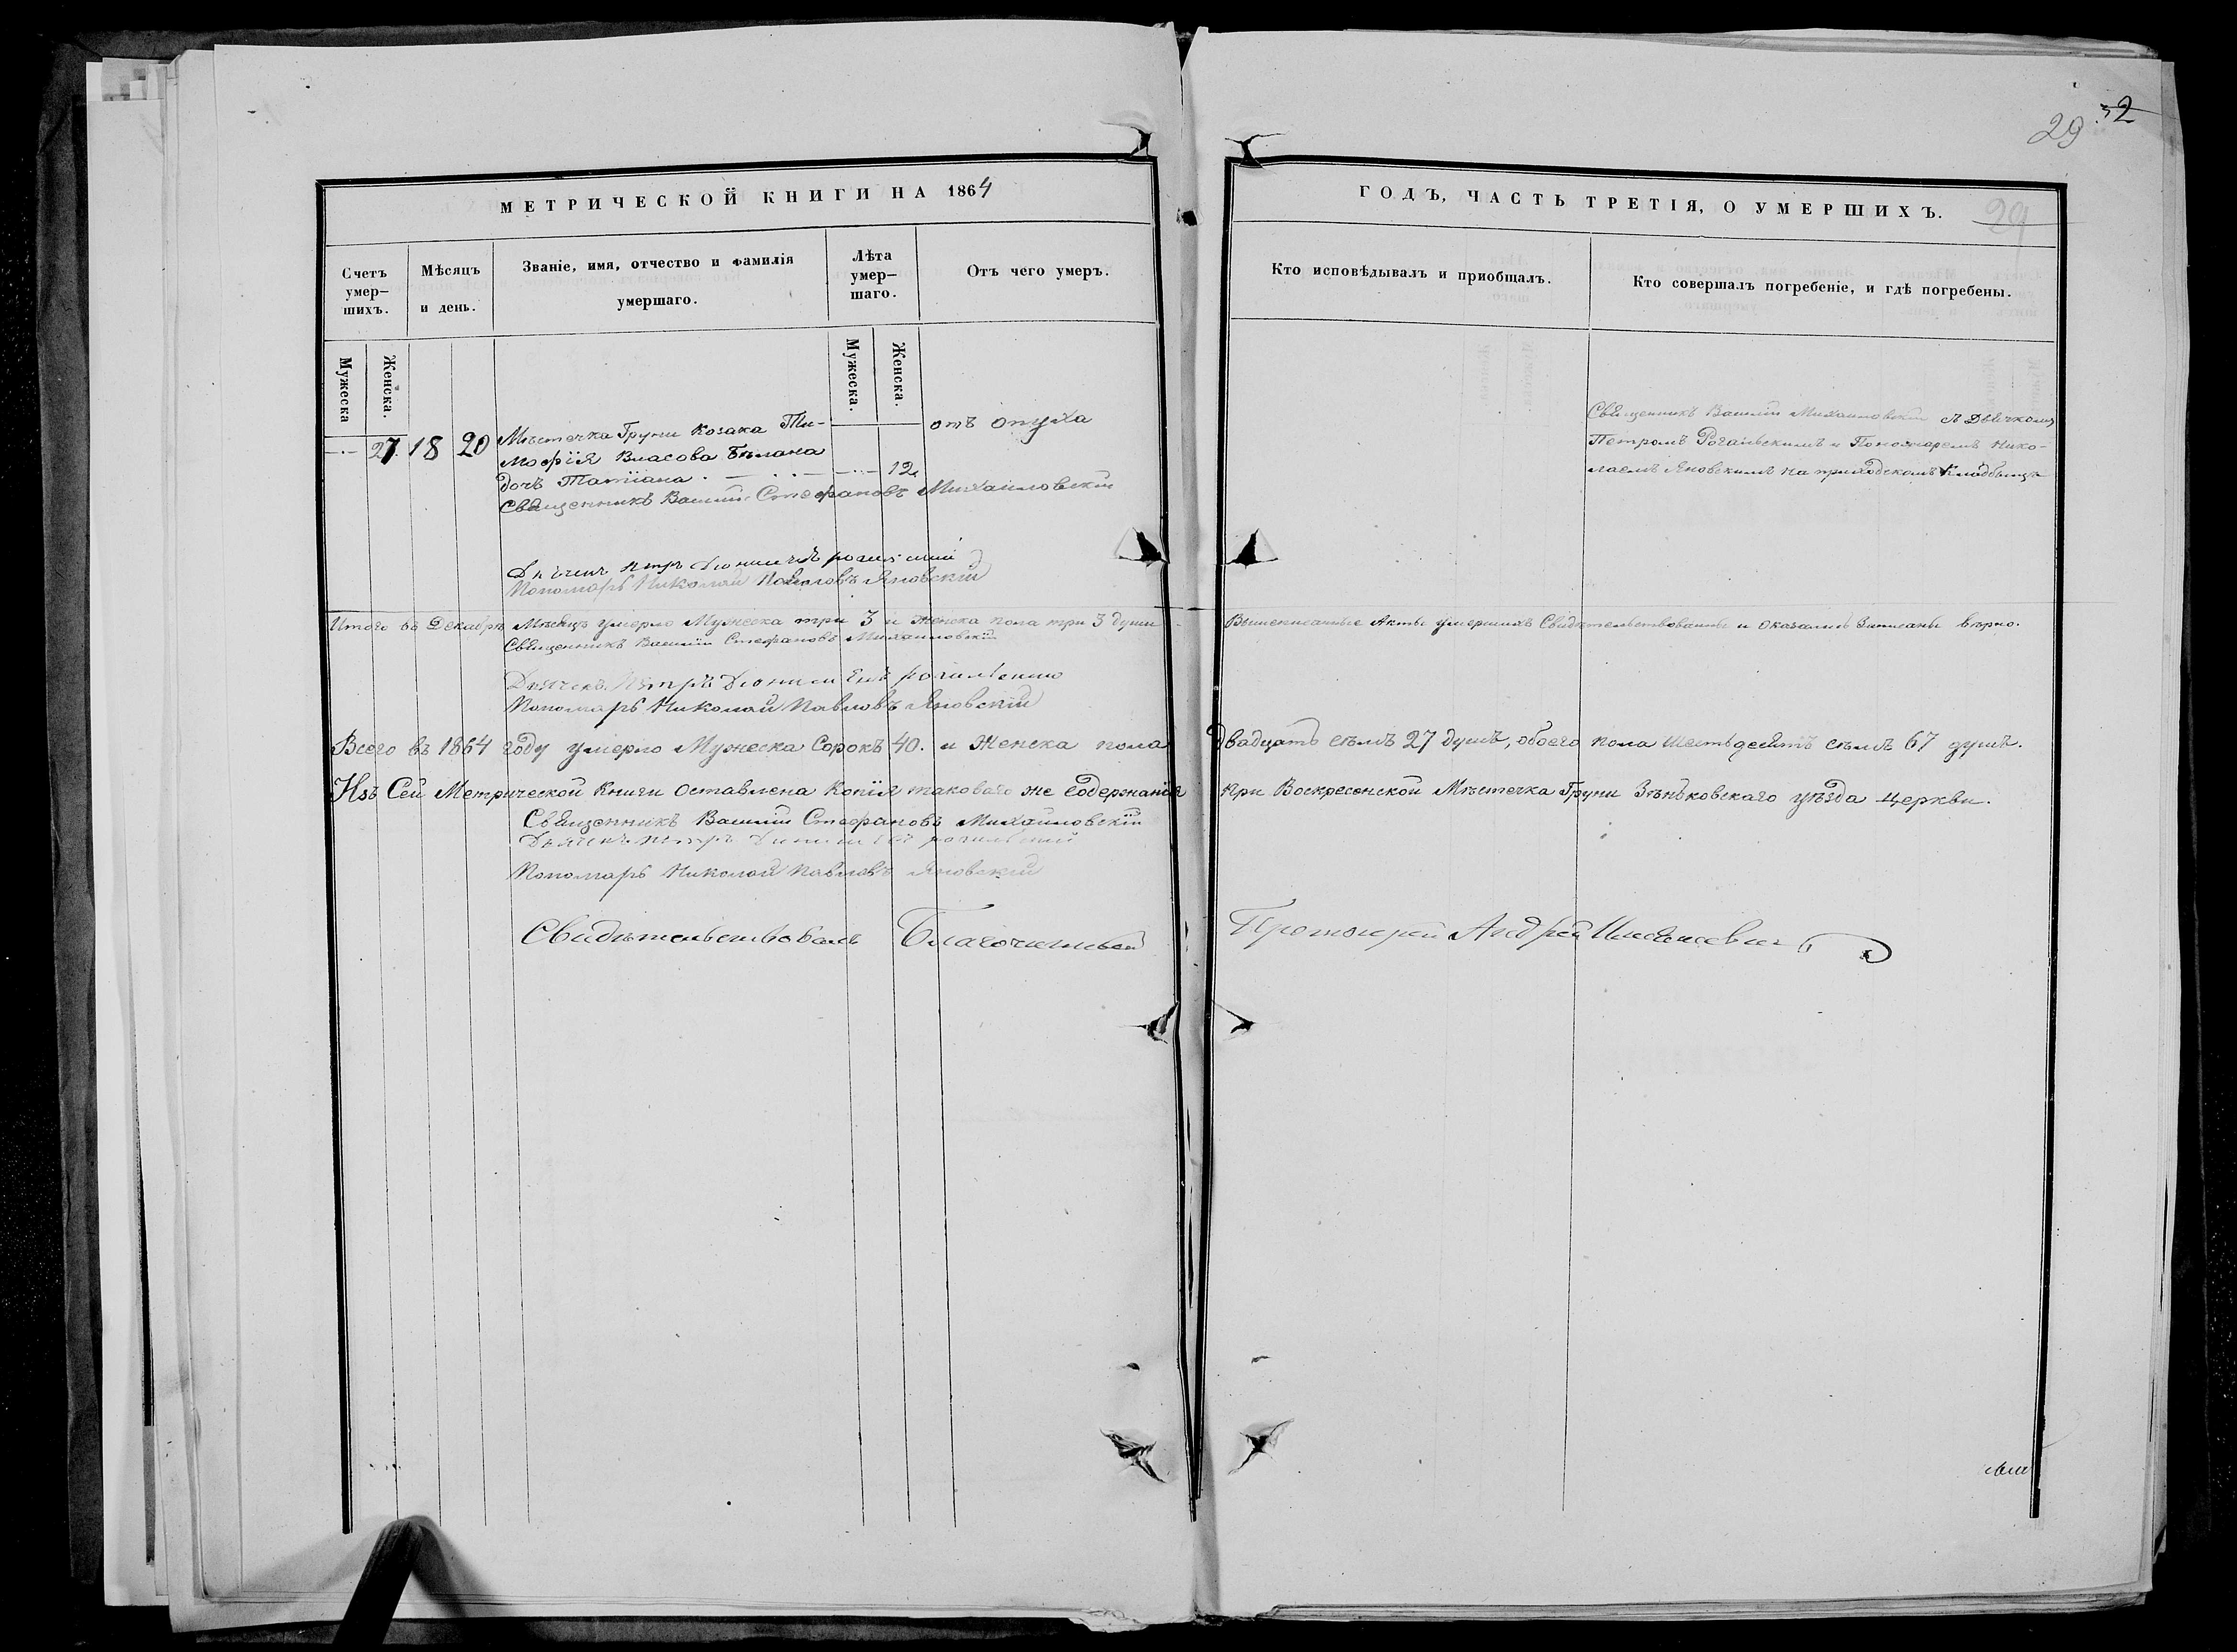 29 32
МЕТРИЧЕСКОЙ КНИГИ НА 1864
ГОДЪ, ЧАСТЬ ТРЕТІЯ, О УМЕРШИХЪ.
29
Счетъ умер-шихъ.
Мѣсяцъ и день.
Званіе, имя, отчество и фамилія умершаго.
Лѣта умер-шаго.
Отъ чего умеръ.
Кто исповѣдывалъ и приобщалъ.
Кто совершалъ погребеніе, и гдѣ погребены.
Мужеска
Женска.
Мужеска.
Женска.
27. 18 20
Мѣстечка Груни Козака Ти-
мофія Власова Бѣлана
дочь Татіана
12
отъ опуха
Священникъ Василій Михайловскій съ Дьячкомъ
Петромъ Рогальскимъ и Пономаремъ Нико-
лаемъ Яновскимъ на приходскомъ Кладбищѣ
Священникъ Василій Стефановъ Михайловскій
Дьячекъ Петръ
Пономарь Николай Павловъ Яновскій
Итого въ Декабрѣ Мѣсяцѣ умерло Мужеска три 3 и Женска пола три 3 души
Вышеписанные Акты умершихъ Свидѣтельствованы и оказались Записаны вѣрно.
Священникъ Василій Стефановъ Михайловскій
Дьячекъ Петръ
Пономарь Николай Павловъ Яновскій
Всего въ 1864 году умерло Мужеска Сорокъ 40. и Женска пола двадцать сѣмъ 27 душъ, обоего пола Шестьдесятъ сѣмъ 67 душъ.
Изъ Сей Метрической Книги Оставлена Копія таковаго же Содержанія при Воскресенской Мѣстечка Груни Зѣньковскаго уѣзда Церкви.
Священникъ Василій Стефановъ Михайловскій
Дьячекъ Петръ
Пономарь Николай Павловъ Яновскій
Свидѣтельствовалъ Благочинный Протоіерей Андрей